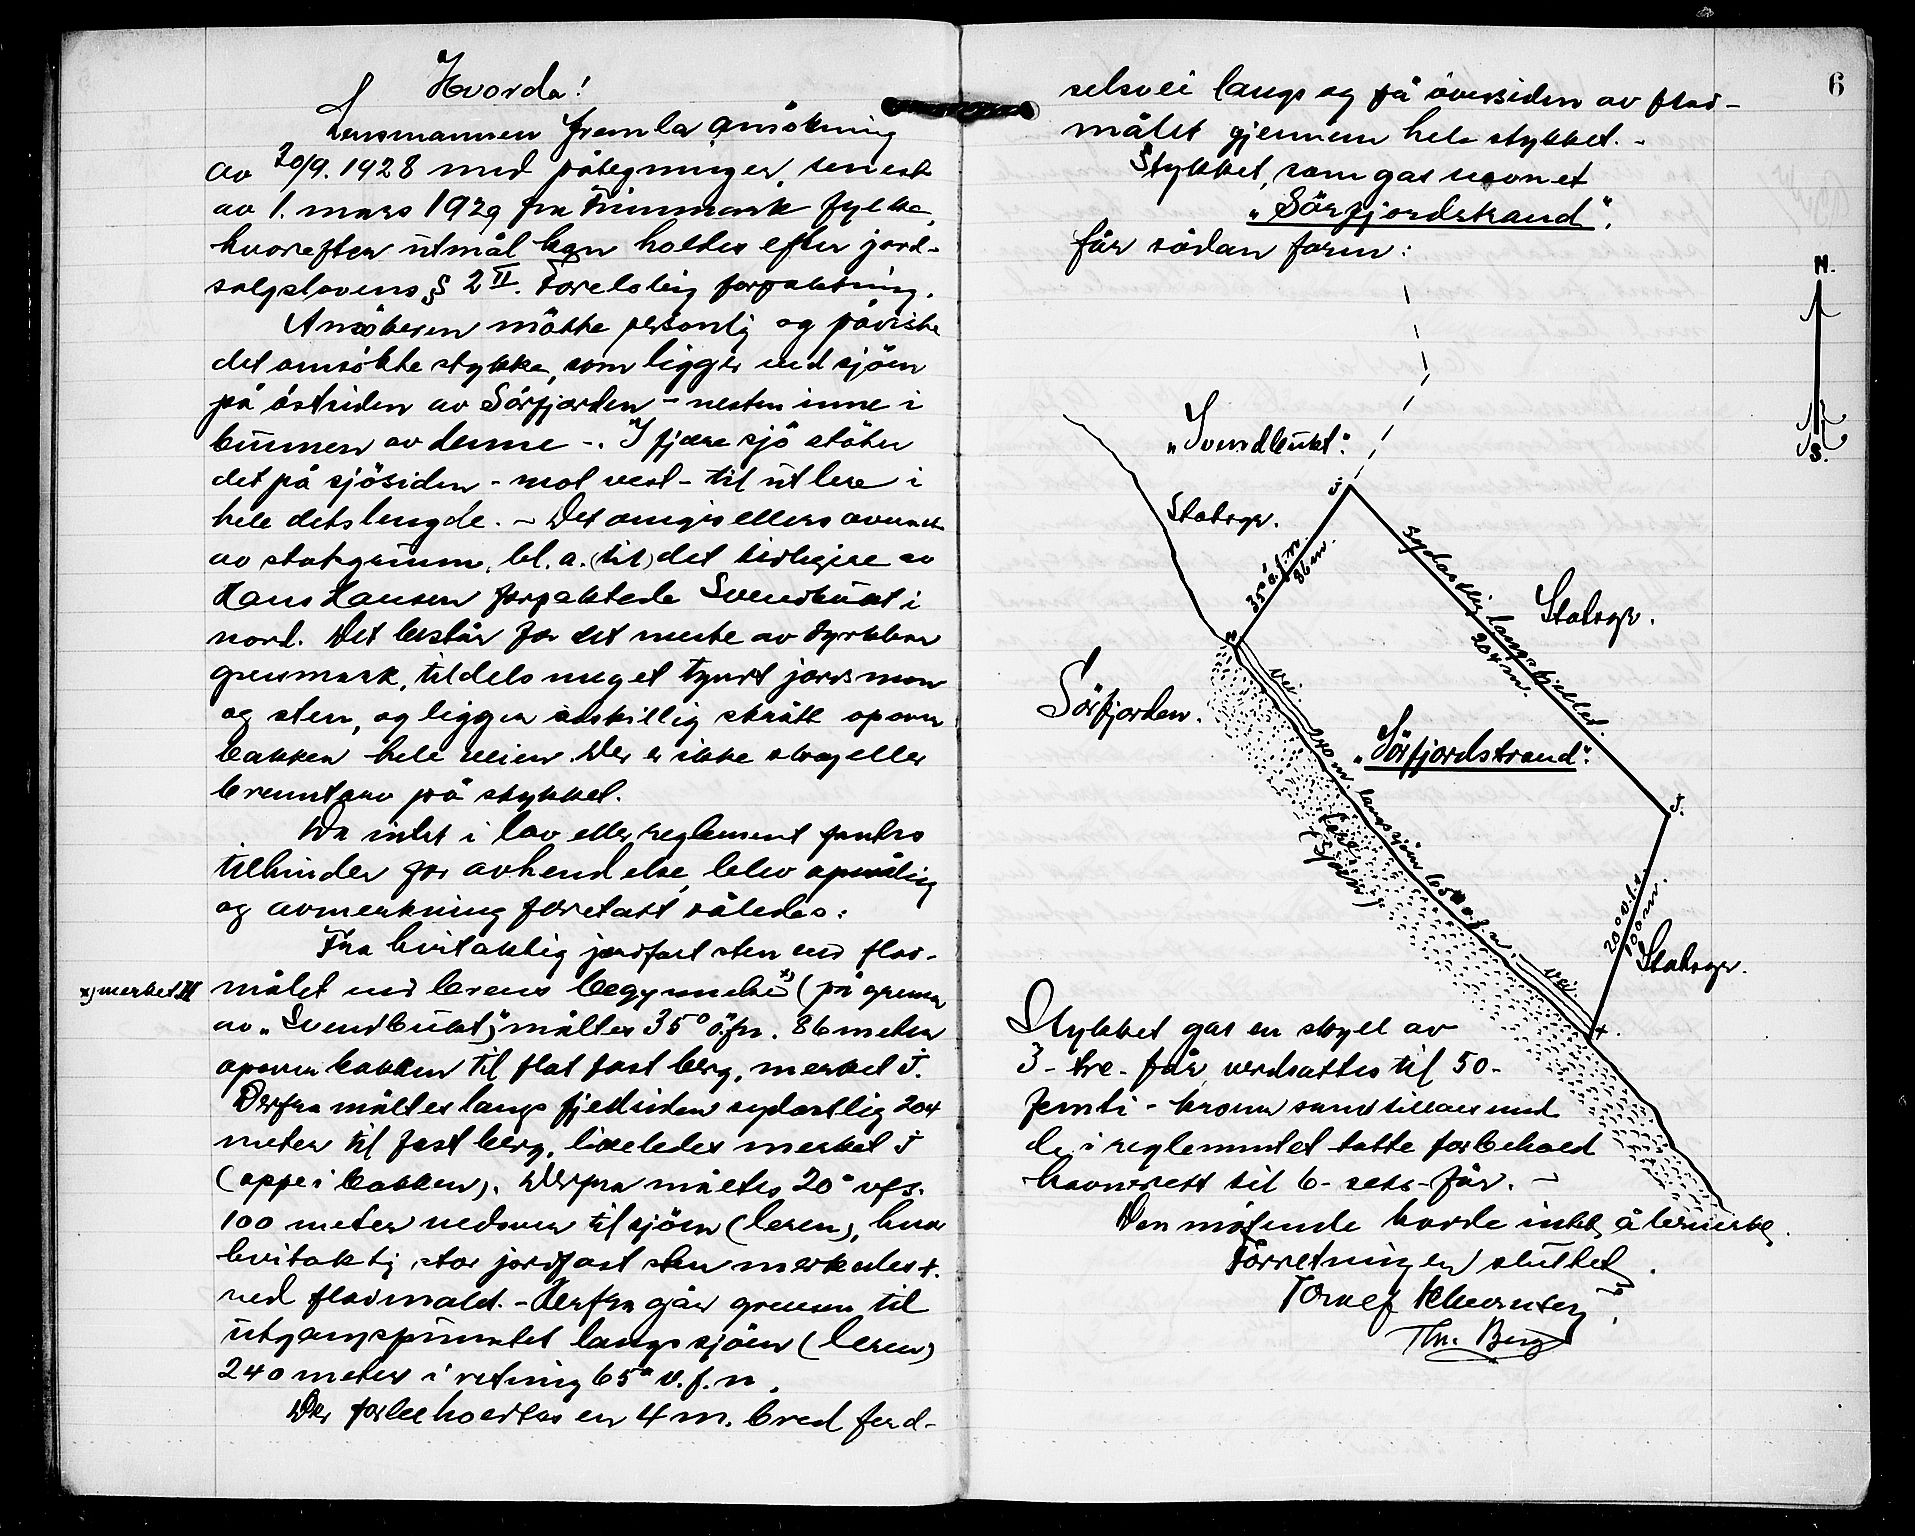 Hvorda!
Lensmannen fremla ansökning
av 20/9. 1928 med påtegninger, senest
av 1. mars 1929 fra Finnmark fylke,
hvorefter utmål kan holdes efter jord-
salgslovens § 2 II. Foreløbig forpaktning.
Ansökeren mötte personlig og påviste
det omsökte stykke, som ligger ved sjöen
på östsiden av Sörfjorden - nesten inne i
bunnen av denne -. I fjære sjö stöter
det på sjösiden - mot vest - til utlere i
hele dets lengde. - Det omgis ellers overalt
av statsgrunn, bl. a. (til) det tidligere av
Hans Hansen forpaktede Svendbukt i
nord. Det består for det meste av dyrkbar
gresmark, tildels meget tynt jordsmon
og sten, og ligger adskillig skrått opover
bakken hele veien. Der er ikke skog eller
brenntorv på stykket.
Da intet i lov eller reglement fantes
tilhinder for avhendelse, blev opmåling
og avmerkning foretatt således:
Fra hvitaktig jordfast sten ved flod-
x) merket II målet ved lerens begynnelse x) (på grensen
av "Svendbukt") måltes 35° ö.f.n. 86 meter
opover bakken til flat fast berg, merket I.
Derfra måltes langs fjellsiden sydostlig 204
meter til fast berg, likeledes merket I
(oppe i bakken). Derfra måltes 20° v.f.s.
100 meter nedover til sjöen (leren), hvor
hvitaktig, stor jordfast sten merkedes +.
ved flodmålet. - Derfra går grensen til
utgangspunktet langs sjöen (leren)
240 meter i retning 65° v.f.n.
Der forbeholdes en 4 m. bred ferd-
6
selsvei langs og på översiden av flod-
målet gjennem hele stykket. -
Stykket, som gas navnet
"Sörfjordstrand".
får sådan form:
N.
S.
"Svendbukt".
Statsgr.
I
35° ö.f.n.
86 m.
Sydostlig langs fjellet.
204 m.
Statsgr.
Sörfjorden.
Vei
"Sörfjordstrand".
240 m. langs sjöen 65° v.f.n.
Lere
(Sjöen)
I.
20° v.f.s.
100 m.
Statsgr.
Vei
+.
Stykket gas en skyld av
3 - tre - øre, verdsattes til 50 -
femti - kroner samt tillaes med
de i reglementet tatte forbehold
havnerett til 6 - seks - får. -
Den mötende hadde intet å bemerke.
Forretningen sluttet.
Thr. Berg